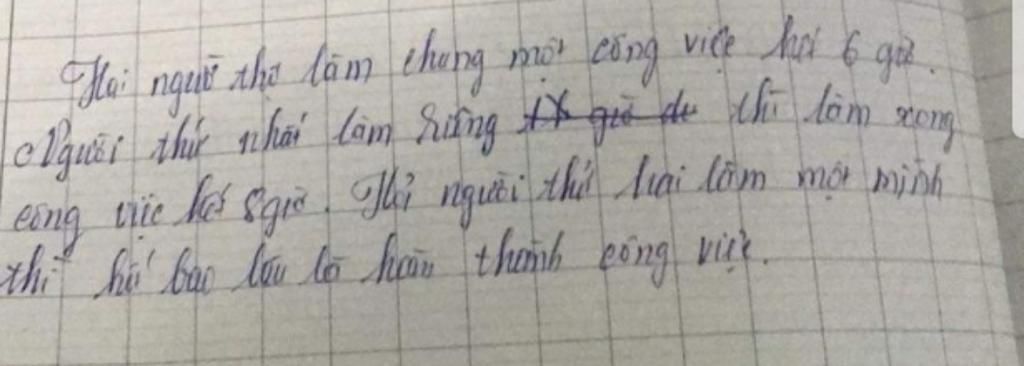 Hai người thợ làm chung một công việc hết 6 giờ.
Người thứ nhất làm riêng thì làm xong
công việc hết 8 giờ. Hỏi người thứ hai làm một mình
thì hết bao lâu là hoàn thành công việc.